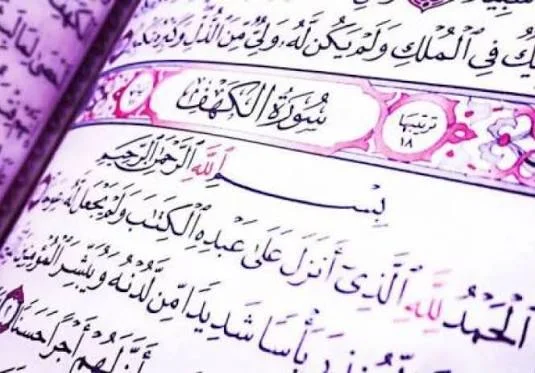 فِى ٱلْمُلْكِ وَلَمْ يَكُن لَّهُۥ وَلِىٌّ مِّنَ ٱلذُّلِّ وَكَبِّرْهُ
ترتيبها ١٨ سُورَةُ الكَهْفِ
بِسْمِ ٱللَّهِ ٱلرَّحْمَٰنِ ٱلرَّحِيمِ
ٱلْحَمْدُ لِلَّهِ ٱلَّذِىٓ أَنزَلَ عَلَىٰ عَبْدِهِ ٱلْكِتَٰبَ وَلَمْ يَجْعَل لَّهُۥ
بَأْسًا شَدِيدًا مِّن لَّدُنْهُ وَيُبَشِّرَ ٱلْمُؤْمِنِينَ
أَنَّ لَهُمْ أَجْرًا حَسَنًا